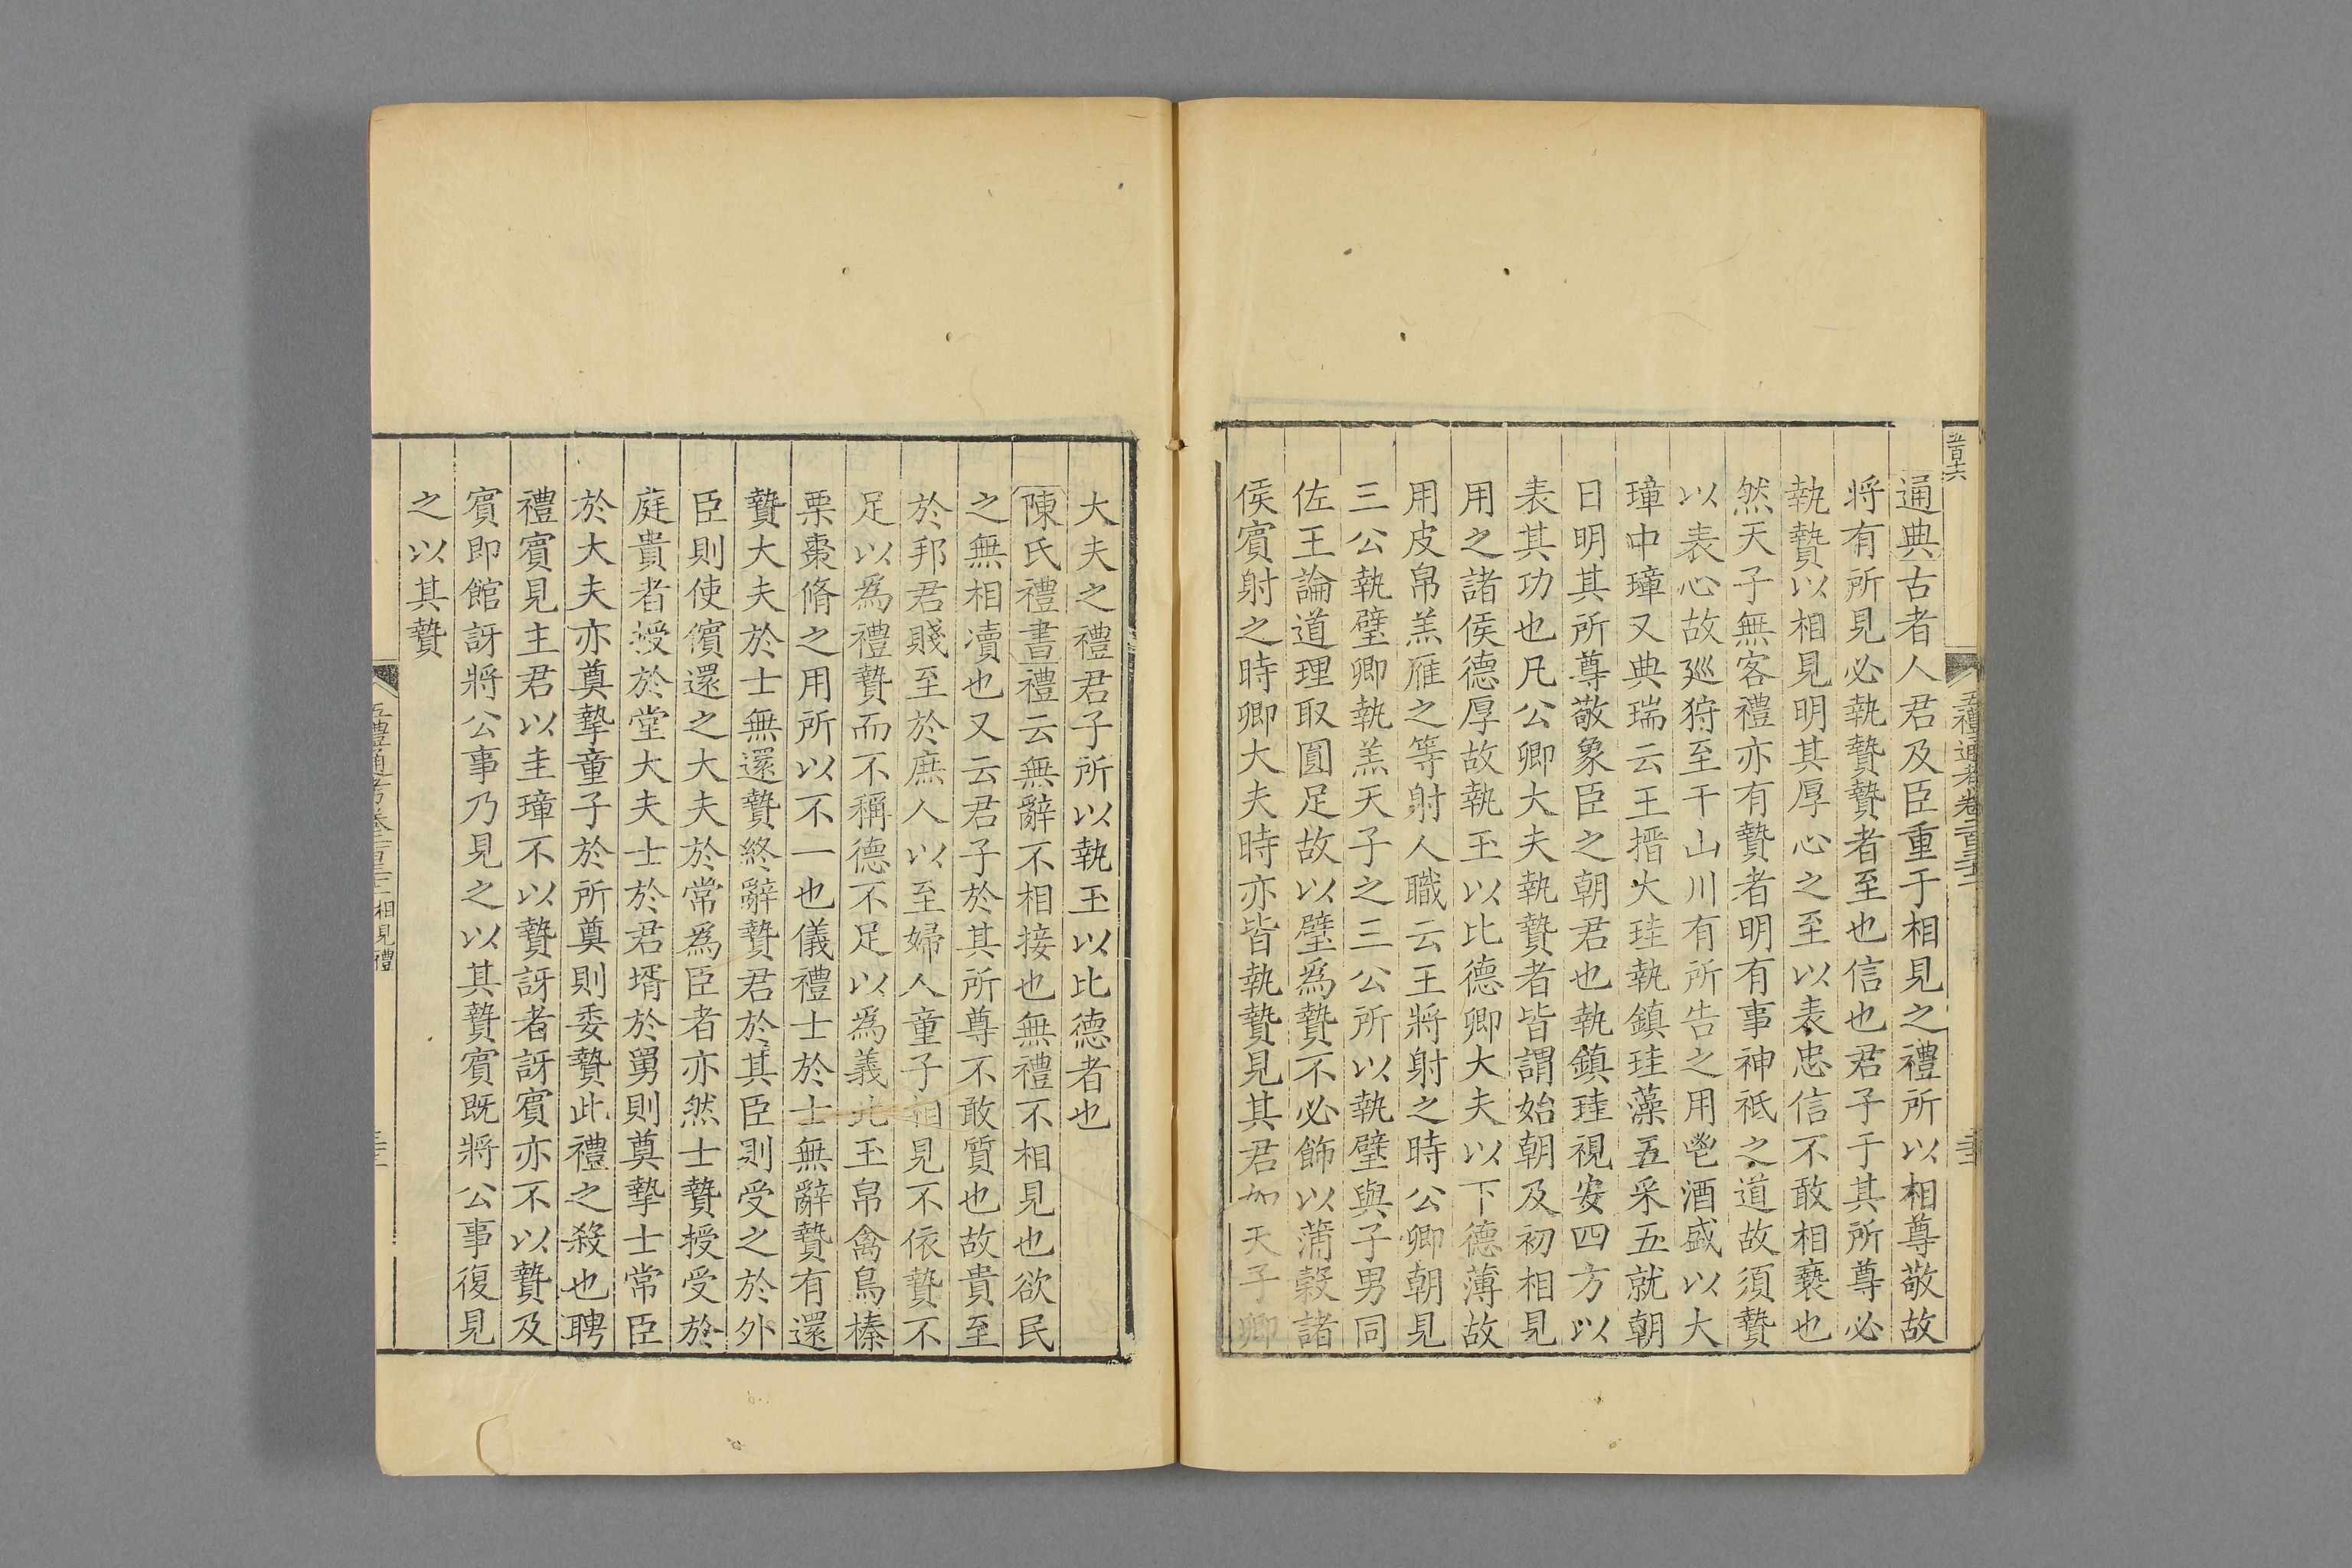 通典古者人君及臣重于相見之禮所以相尊敬故
將有所見必執贄贄者至也信也君子于其所尊必
執贄以相見明其厚心之至以表忠信不敢相褻也
然天子無客禮亦有贄者明有事神祗之道故須贄
以表心故廵狩至于山川有所告之用鬯酒盛以大
璋中璋又典瑞云王搢大珪執鎮珪藻五采五就朝
日明其所尊敬象臣之朝君也執鎮珪視安四方以
表其功也凡公卿大夫執贄者皆謂始朝及初相見
用之諸侯德厚故執玉以比德卿大夫以下德薄故
用皮帛羔雁之等射人職云王將射之時公卿朝見
三公執璧卿執羔天子之三公所以執璧與子男同
佐王論道理取圓足故以璧爲贄不必飾以蒲穀諸
侯賓射之時卿大夫時亦皆執贄見其君如天子卿
大夫之禮君子所以執玉以比德者也
陳氏禮書禮云無辭不相接也無禮不相見也欲民
之無相瀆也又云君子於其所尊不敢質也故貴至
於邦君賤至於庶人以至婦人童子相見不依贄不
足以爲禮贄而不稱德不足以爲義此玉帛禽鳥榛
栗棗脩之用所以不一也儀禮士於士無辭贄有還
贄大夫於士無還贄終辭贄君於其臣則受之於外
臣則使儐還之大夫於常爲臣者亦然士贄授受於
庭貴者授於堂大夫士於君壻於舅則奠摯士常臣
於大夫亦奠摯童子於所奠則委贄此禮之殺也聘
禮賓見主君以圭璋不以贄訝者訝賓亦不以贄及
賓即館訝將公事乃見之以其贄賓既將公事復見
之以其贄
五禮通考卷二百三十二
相見禮